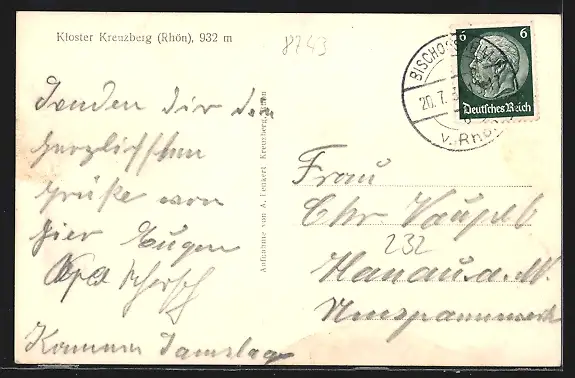 Kloster Kreuzberg (Rhön), 932 m
8743
Senden dir die
herzlichsten
Grüße von
hier Eugen
Opa
Kommen Samstag
Aufnahme von A. Leukert Kreuzberg
BISCHOFSHEIM
20.7.3
v. Rhön
6 6
Deutsches Reich
Frau
Chr Vaupel
232
Hanau a. M.
Umspannwerk